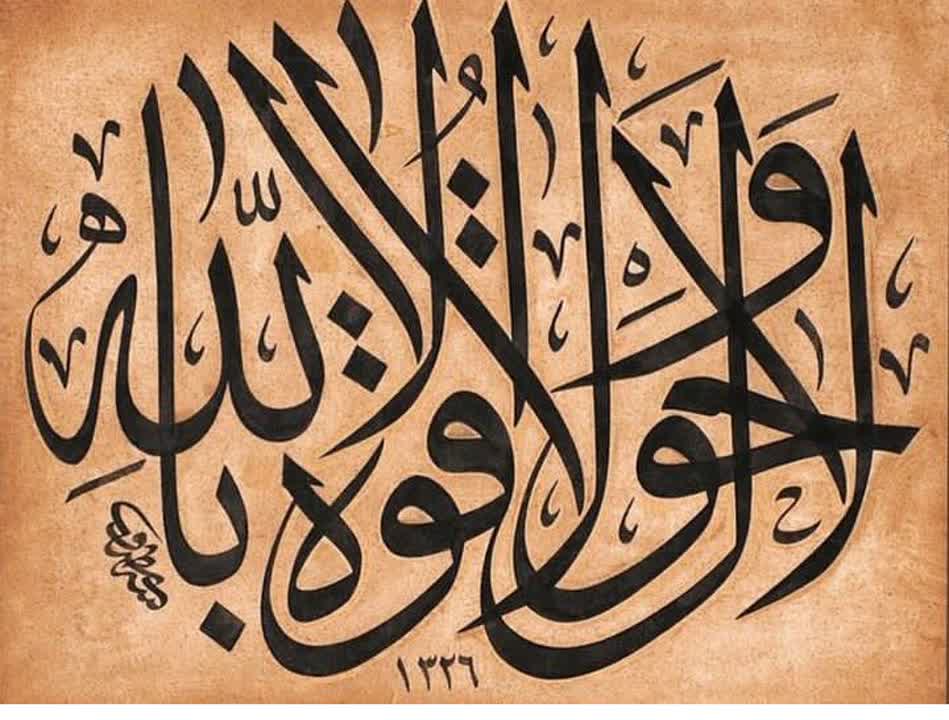 لا حول ولا قوة إلا بالله
١٣٢٦